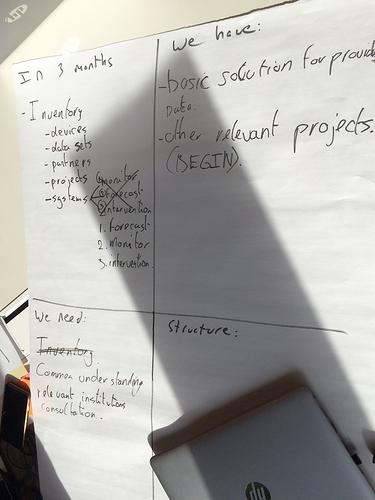 In 3 months
- Inventory
- devices
- data sets
- partners
- projects
- systems
① monitor
② forecast
③ intervention
1. Forecast
2. Monitor
3. intervention
We have:
- basic solution for provid
Data.
- other relevant projects.
(BEGIN).
We need:
Inventory
Common understanding
relevant institutions
consultation.
Structure:
hp
hp